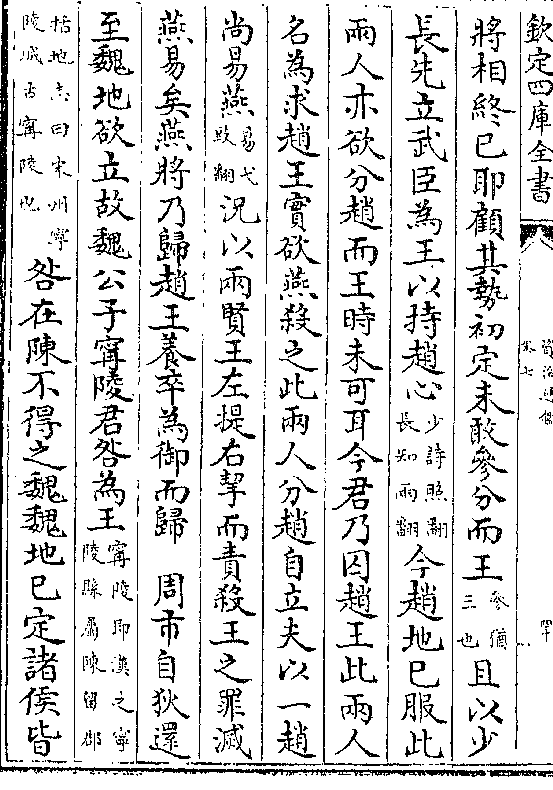 欽定四庫全書
資治通鑑
卷七
四十
將相終已耶顧其勢初定未敢參分而王參猶三也且以少
長先立武臣為王以持趙心少詩照翻長知兩翻今趙地已服此
兩人亦欲分趙而王時未可耳今君乃囚趙王此兩人
名為求趙王實欲燕殺之此兩人分趙自立夫以一趙
尚易燕易弋䜴翻況以兩賢王左提右挈而責殺王之罪滅
燕易矣燕將乃歸趙王養卒為御而歸　周市自狄還
至魏地欲立故魏公子甯陵君咎為王甯陵即漢之甯陵縣屬陳留郡
括地志曰宋州甯陵城古甯陵也咎在陳不得之魏魏地已定諸侯皆